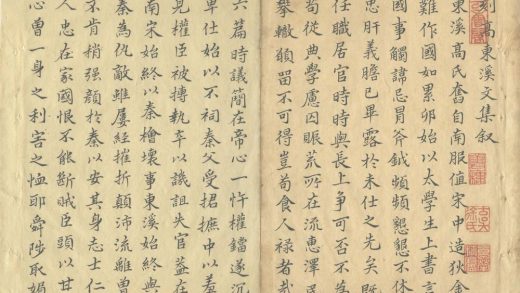 刻高東溪文集叙
東溪高氏奮自南服值宋中造狄金
難作國如累卵始以太學生上書言
國事觸諱忌冒斧鉞頻頻懇懇不休
忠肝義膽已畢露於未仕之先矣既
任職居官時時與長上争可否不爲
苟從典學慮囚賑荒所在流惠澤民
攀轍願留不可得豈苟食人禄者哉
六篇時議簡在帝心一忤權鐺遂沉
卑仕始以不祠秦父受招摭中以羞
見權臣被摶執卒以譏詛失官蓋在
南宋始終以秦檜壞事東溪始終與
秦為仇敵雖屡經摧折顛沛流離曾
不肯稍强顔於秦以安其身志士仁
人忠在家國恨不能斷賊臣頭以甘
心曾一身之利害之恤耶舜陟取媚